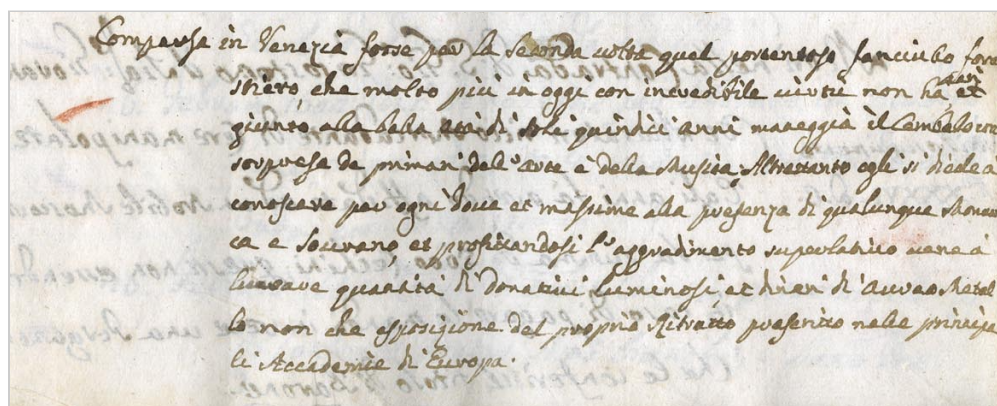 Comparsa in Venezia forse per la seconda volta quel portentoso fanciulo fore
stiero, che molto più in oggi con incredibile virtù non ha
giunto alla bella età di soli quindici anni maneggia il Cembalo con
sorpresa de primari del'arte e della Musica; Altretanto egli si diede a
conoscere per ogni dove et massime alla presenza di qualunque Monar
ca e Sovrano, et proficandosi l'aggradimento superlativo vene a
lucrare quantità di donativi luminosi, et dinari di Aureo Metal
lo non che esposizione del proprio Ritratto preferito nelle principa
li Accademie di Europa.